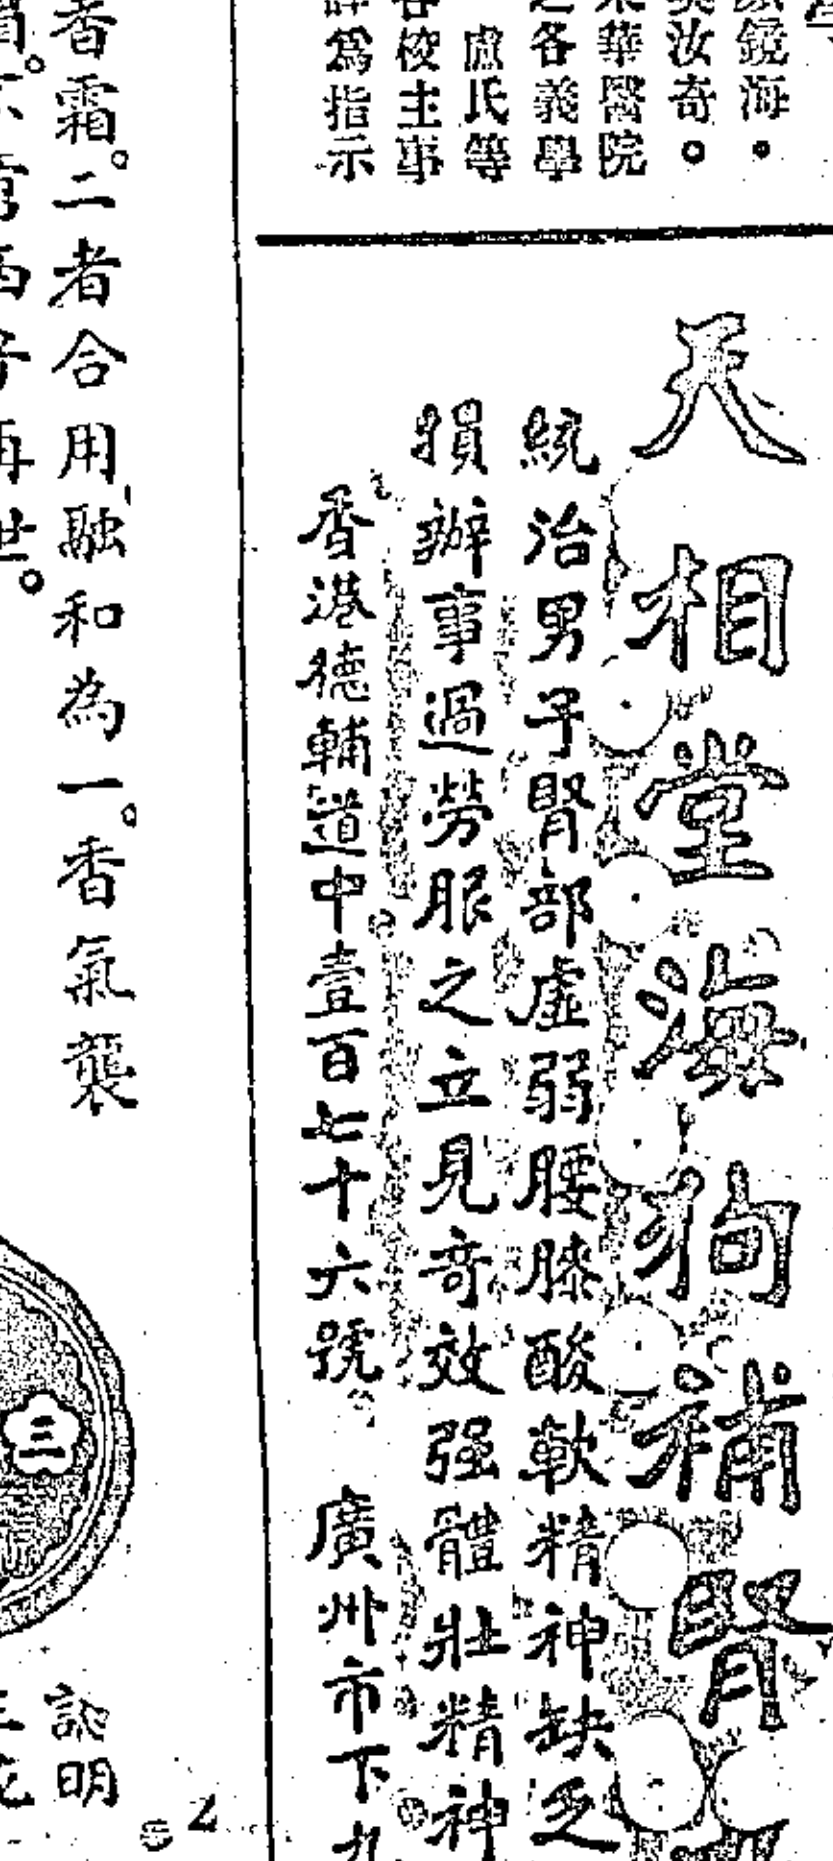 鏡海。
汝奇。
華醫院
各義學
盧氏等
各校主事
爲指示
天相堂海狗補腎
統治男子腎部虛弱腰膝酸軟精神缺乏
損辦事過勞服之立見奇效强體壯精神
香港德輔道中壹百七十六號 廣州市下九
香霜。二者合用融和為一。香氣襲
再世。
三
說明